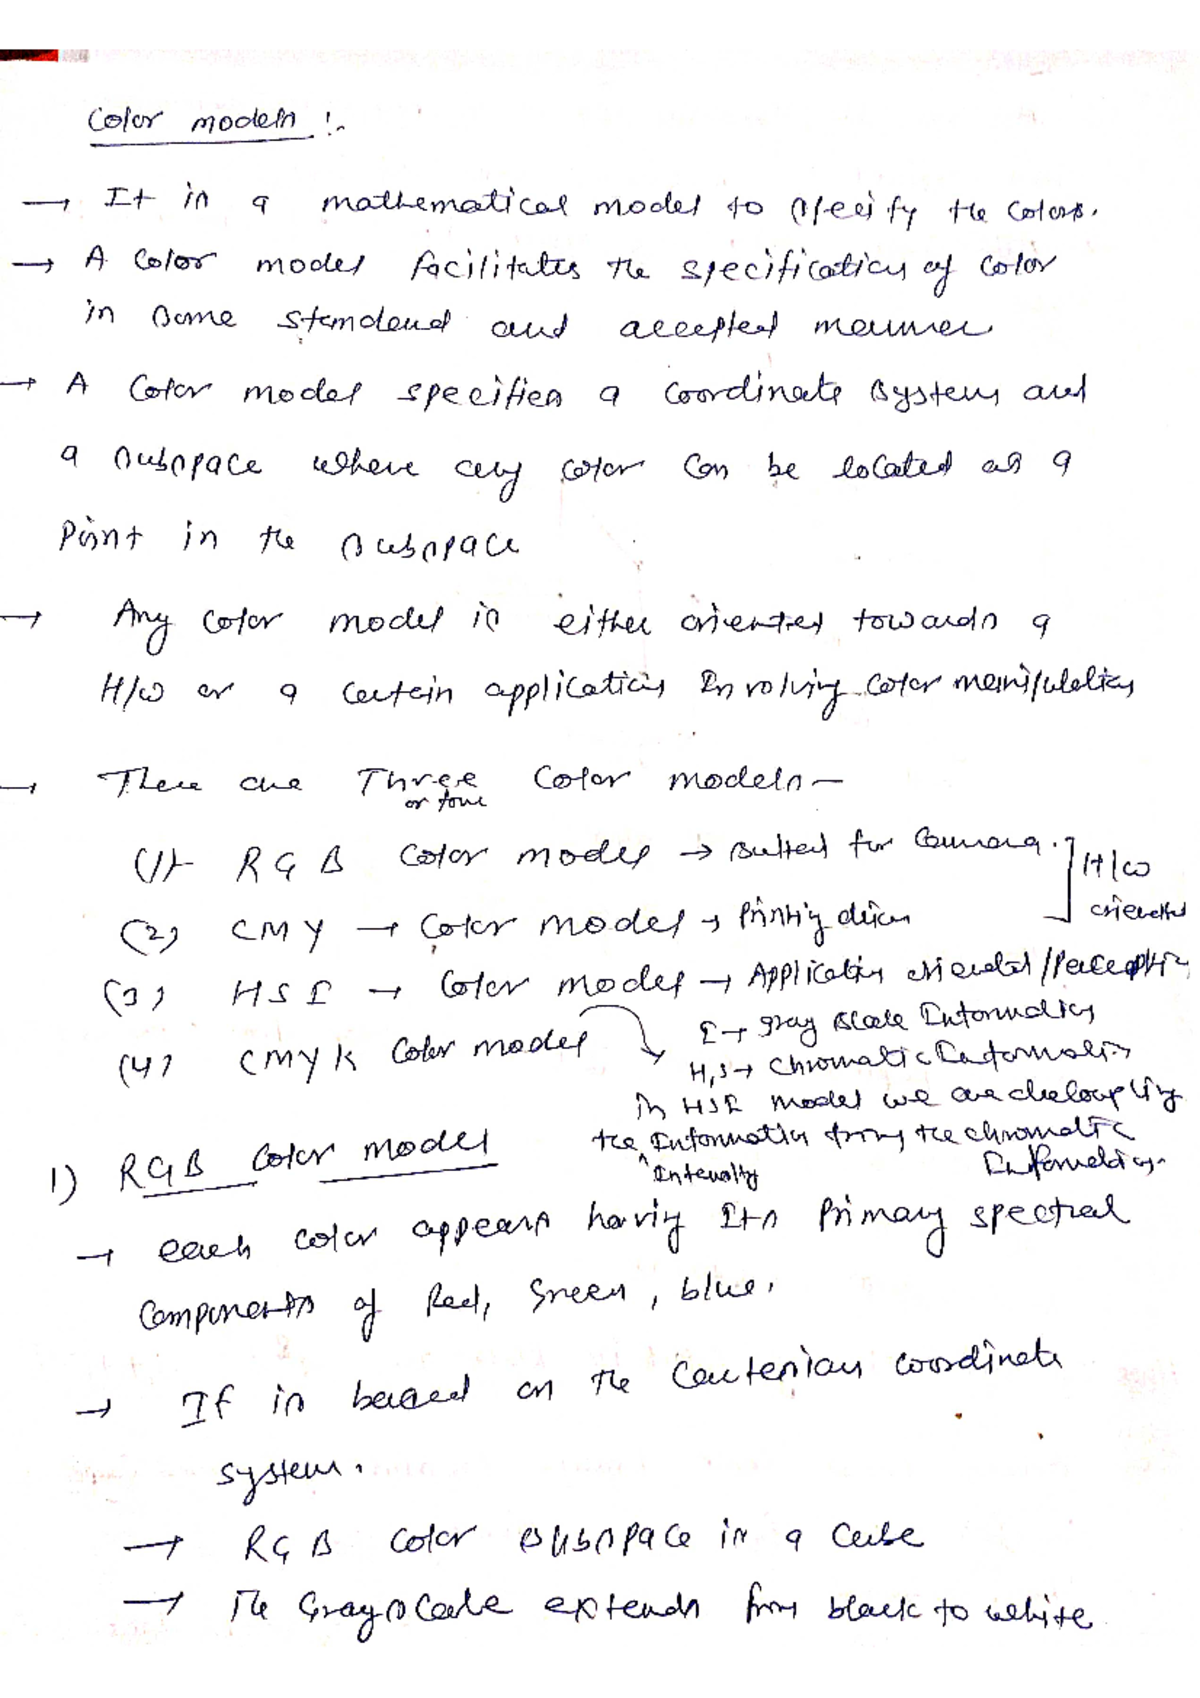 Color models :-
→ It is a mathematical model to specify the colors.
→ A color model facilitates the specification of color
in some standard and accepted manner
→ A color model specifies a coordinate system and
a subspace where any color can be located as a
point in the subspace
→ Any color model is either oriented towards a
H/W or a certain application Involving color manipulation
→ There are Three color models –
or four
(1) RGB color model → suited for Camara.
H/W
oriented
(2) CMY → color model → printing device
(3) HSI → color model → Application oriented / perception
I → gray scale Information
(4) CMYK color model
H,S → chromatic Information
in HSI model we are decoupling
the Information from the chromatic
^ Intensity
Information.
1) RGB color model
→ each color appears having Its primary spectral
components of Red, Green, blue.
→ It is based on the cartesian coordinate
system.
→ RGB color subspace is a cube
→ The Grayscale extends from black to white